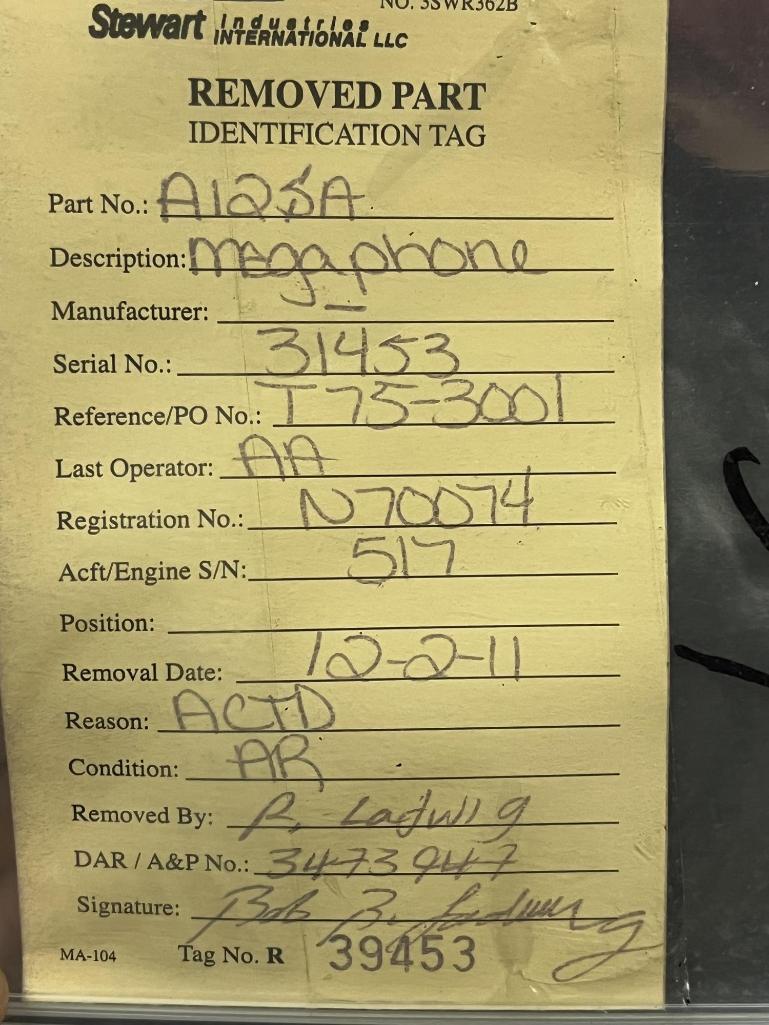 NO. 3SWR362B
Stewart Industries INTERNATIONAL LLC
REMOVED PART
IDENTIFICATION TAG
Part No.: A12SA
Description: megaphone
Manufacturer: —
Serial No.: 31453
Reference/PO No.: T75-3001
Last Operator: AA
Registration No.: N70074
Acft/Engine S/N: 517
Position:
Removal Date: 12-2-11
Reason: ACTD
Condition: AR
Removed By: R. Ladwig
DAR / A&P No.: 3473947
Signature: Bob B. Ladwig
MA-104 Tag No. R 39453